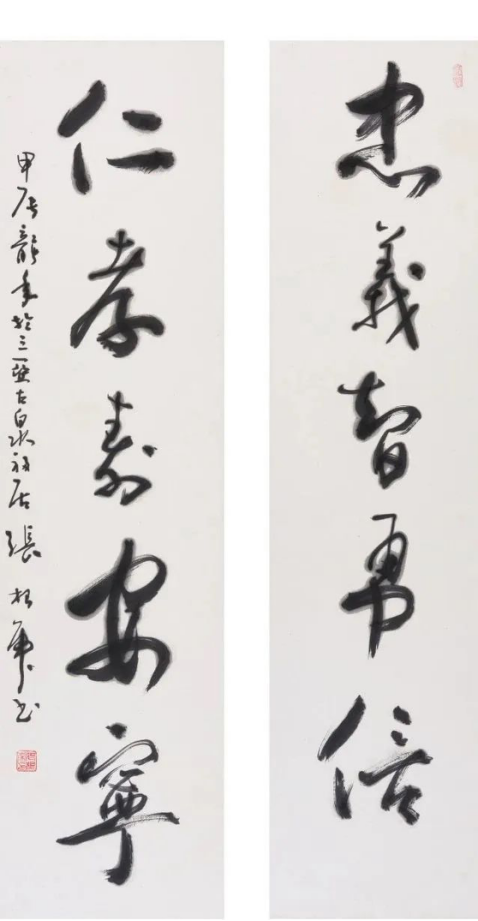 忠義智勇信
仁孝壽安寧
甲辰龍年於三亞古泉初居 張松軍书